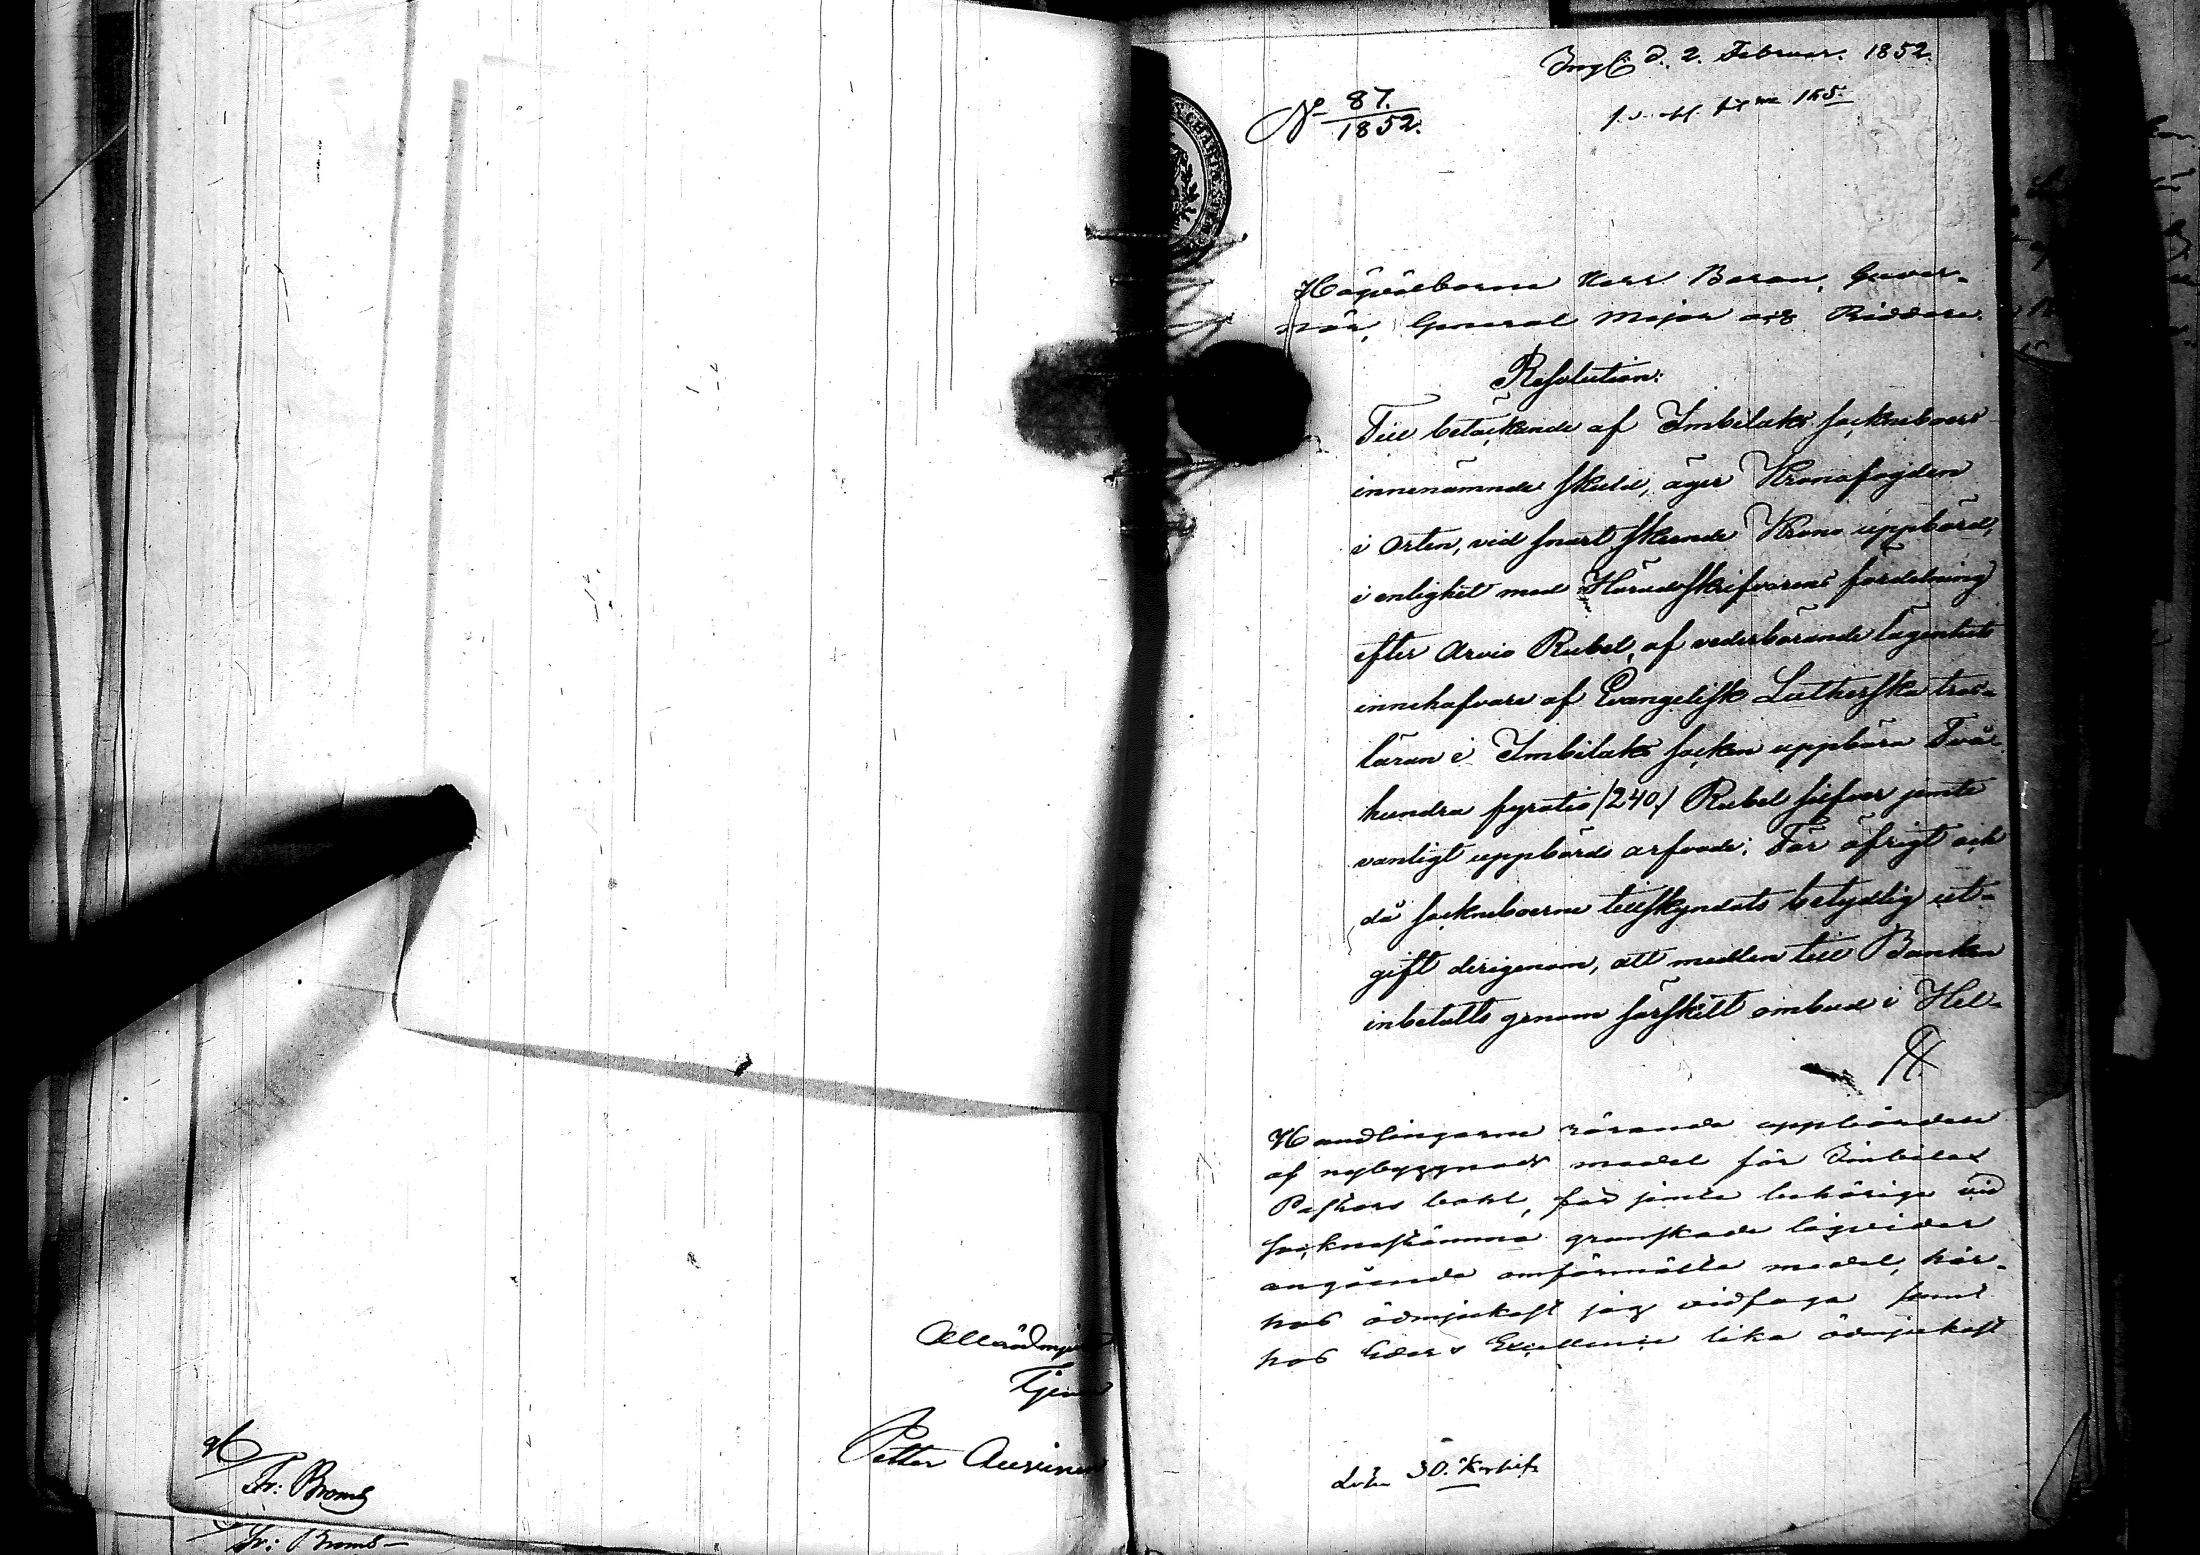 Allerödmju
Tjena
Petter Auvinen
Fr: Broms
Fr: Broms
Ing. d. 2. Februar. 1852.
No 87.
1852.
Högvälborne Herr Baron, Guver-
nör, General Major och Riddare.
Resolution:
Till betäckande af Imbilaks sockneboers
innenämnde skuld, äger Kronofogden
i orten, vid snart skeende Krono uppbörd,
i enlighet med Häradsskrifvarens fördelning
efter Arvio Rubel, af vederbörande lägenhets
innehafvare af Evangelisk Lutherska tros-
läran i Imbilaks socken uppbära Två-
hundra fyratio /240./ Rubel silfver jemte
vanligt uppbörds arfvode; För öfrigt och
då sockneboerne tillskyndats betydlig ut-
gift derigenom, att medlen till Banken
inbetalts genom särskilt ombud i Hel-
Handlingarne rörande uppbörden
af nybyggnads medel för Imbilax
Pastors bohl, får jemte behörige vid
socknestämma granskade liqvider
angående omförmälte medel, här-
hos ödmjukast jag vidfoga samt
hos Eders Excellence lika ödmjukast
Lösen 30. Kop. silf.